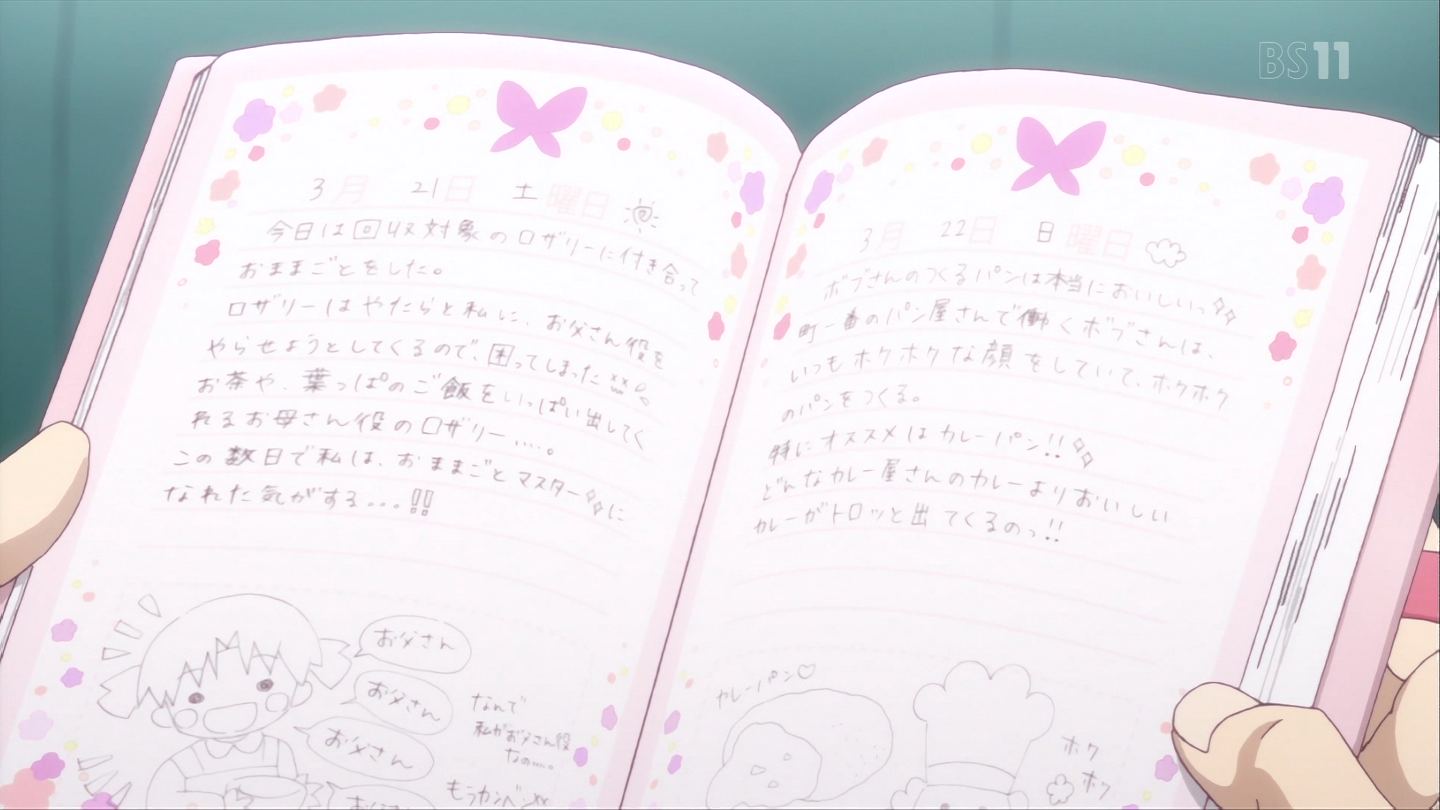 BS11
3月 21日 土曜日
今日は回収対象のロザリーに付き合って
おままごとをした。
ロザリーはやたらと私に、お父さん役を
やらせようとしてくるので、困ってしまった
お茶や、葉っぱのご飯をいっぱい出してく
れるお母さん役のロザリー....。
この数日で私は、おままごとマスターに
なれた気がする...!!
お父さん
お父さん
お父さん
なんで
私がお父さん役
なの....。
もうカンベン
3月 22日 日曜日
ボブさんのつくるパンは本当においしいっ
町一番のパン屋さんで働くボブさんは、
いつもホクホクな顔をしていて、ホクホク
のパンをつくる。
特にオススメはカレーパン!!
どんなカレー屋さんのカレーよりおいしい
カレーがトロッと出てくるのっ!!
カレーパン♡
ホク
ホク